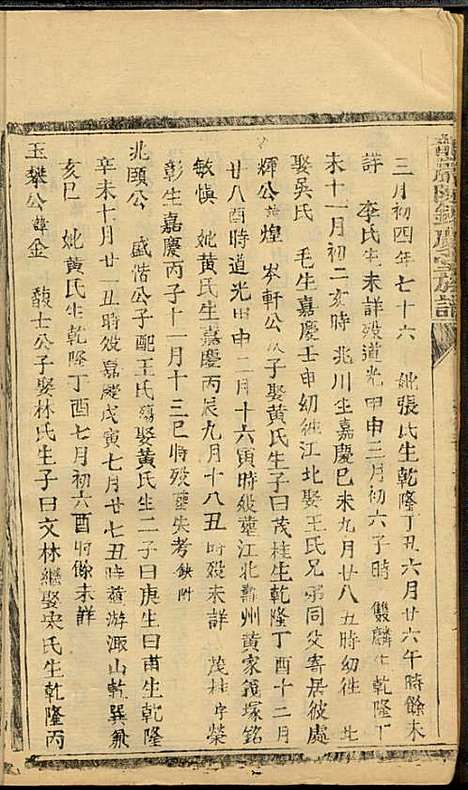 三月初四年七十六　妣張氏生乾隆丁丑六月廿六午時餘未
詳　李氏生未詳殁道光甲申三月初六子時　雙麟生乾隆丁
未十一月初二亥時　兆川生嘉慶己未九月廿八丑時幼往
娶吳氏　毛生嘉慶壬申幼往江北娶王氏兄弟同父寄居彼處
輝公諱煌　岑軒公次子娶黃氏生子曰茂桂生乾隆丁酉十二月
廿八酉時道光甲申二月十六寅時殁葬江北壽州黃家 塚銘
敏慎　妣黃氏生嘉慶丙辰九月十八丑時殁未詳　茂桂字榮
彰生嘉慶丙子十一月十三巳時殁葬失考 缺附
兆頤公　盛偕公子配王氏殤娶黃氏生二子曰庚生曰甫生乾隆
辛未十月廿一丑時殁嘉慶戊寅七月廿七丑時葬游 山乾巽兼
亥巳　妣黃氏生乾隆丁酉七月初六酉時餘未詳
玉攀公諱金　馥士公子娶林氏生子曰文林繼娶宋氏生乾隆丙
族譜